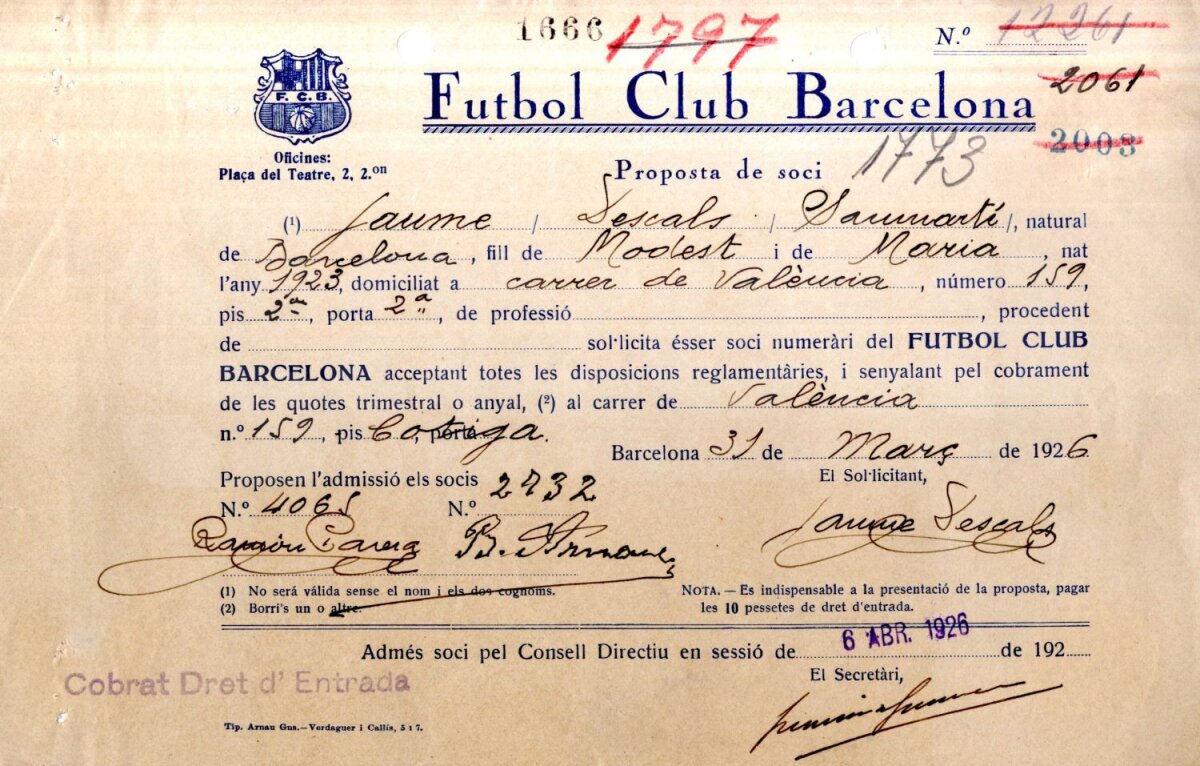 1666 1797 N.º 12261
F.C.B. Futbol Club Barcelona 2061
2003
Oficines:
Plaça del Teatre, 2, 2.on
Proposta de soci 1773
(1) Jaume / Descals / Sanmartí /, natural
de Barcelona, fill de Modest i de Maria, nat
l'any 1923, domiciliat a carrer de València, número 159,
pis 2on, porta 2ª, de professió, procedent
de sol·licita ésser soci numeràri del FUTBOL CLUB
BARCELONA acceptant totes les disposicions reglamentàries, i senyalant pel cobrament
de les quotes trimestral o anyal, (2) al carrer de València
n.º 159, pis Botiga, porta.
Barcelona 31 de Març de 1926
Proposen l'admissió els socis
El Sol·licitant,
N.º 4065 N.º 2732
Ramón Parera B. Jaume Descals
(1) No será válida sense el nom i els dos cognoms.
(2) Borri's un o altre.
NOTA. — Es indispensable a la presentació de la proposta, pagar
les 10 pessetes de dret d'entrada.
Admés soci pel Consell Directiu en sessió de 6 ABR. 1926 de 192
El Secretári,
Cobrat Dret d' Entrada
Tip. Arnau Gus.—Verdaguer i Callís, 5 i 7.